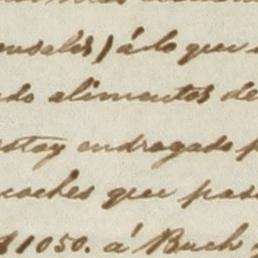 nsales) á lo que
do alimentos de
estoy endrogado p
coches que pas
$1050. á Buch y